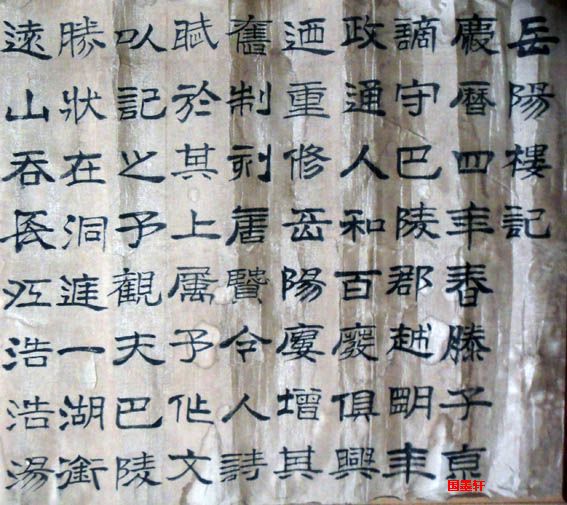 岳陽樓記
慶曆四年春滕子京
謫守巴陵郡越明年
政通人和百廢俱興
迺重修岳陽廔增其
舊制刻唐賢今人詩
賦於其上属予作文
以記之予觀夫巴陵
勝狀在洞庭一湖銜
遠山吞長江浩浩湯
国墨轩